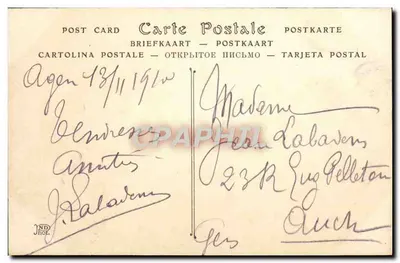 POST CARD Carte Postale POSTKARTE
BRIEFKAART — POSTKAART
CARTOLINA POSTALE — ОТКРЫТОЕ ПИСЬМО — TARJETA POSTAL
Agen 13/11 1910
Tendresses
Amitiés
J. Labadens
Madame
Jean Labadens
23 R Eug Pelletan
Auch
Gers
CPAPHIL
ND
PHOT